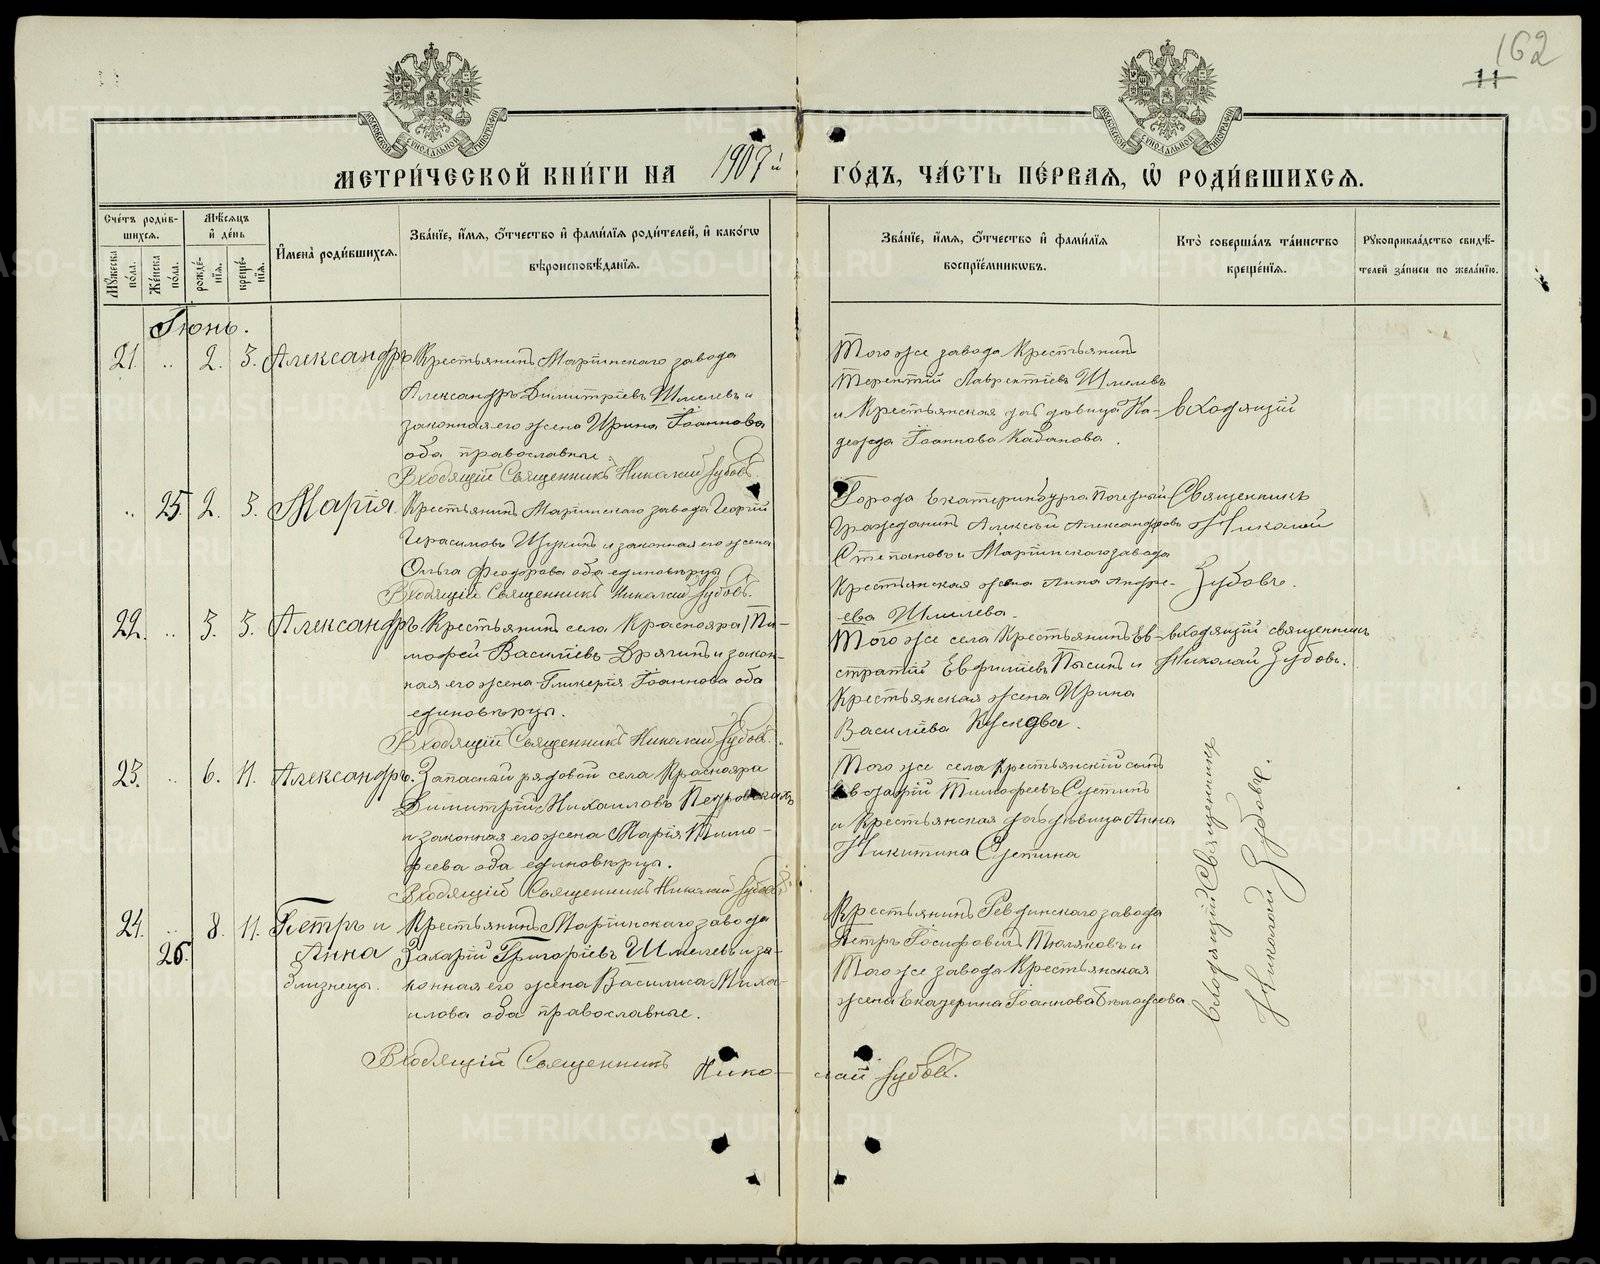 162
11
МЕТРИ́ЧЕСКОЙ КНИ́ГИ НА 1907й ГО́ДЪ, ЧА́СТЬ ПЕ́РВАѦ, Ѡ҆ РОДИ́ВШИХСѦ.
Сче́тъ роди́в-
шихсѧ.
Мꙋжеска по́ла.
Же́нска по́ла.
Мѣ́сѧцъ
и҆ де́нь
рожде́-
нїѧ.
креще́-
нїѧ.
И҆мена̀ роди́вшихсѧ.
Зва́нїе, и҆́мѧ, ѻ҆́тчество и҆ фами́лїѧ роди́телей, и҆ како́гѡ
вѣроисповѣ́данїѧ.
Зва́нїе, и҆́мѧ, ѻ҆́тчество и҆ фами́лїѧ
воспрїе́мникѡвъ.
Кто̀ соверша́лъ та́инство
креще́нїѧ.
Рꙋкоприкла́дство свидѣ́-
телей за́писи по жела́нїю.
Іюнь.
21. „ 2. 3. Александръ
Крестьянинъ Маріинскаго завода
Александръ Димитріевъ Шмелевъ и
законная его жена Ирина Іоаннова
оба православные
Входящій Священникъ Николай Зубовъ.
Того же завода Крестьянинъ
Терентій Лаврентіевъ Шмелевъ
и Крестьянская дочь девица На-
дежда Іоаннова Кабанова.
входящій
„ 25. 2. 3. Марія
Крестьянинъ Маріинскаго завода Георгій
Герасимовъ Щукинъ и законная его жена
Ольга Феодорова оба единоверцы
Входящій Священникъ Николай Зубовъ.
Города Екатеринбурга Почетный
Гражданинъ Алексѣй Александровъ
Степановъ и Маріинскаго завода
Крестьянская жена Анна Андре-
ева Шмелева.
Священникъ
Николай
Зубовъ.
22. „ 3. 3. Александръ
Крестьянинъ села Краснояра Ти-
мофей Василіевъ Дрягинъ и закон-
ная его жена Гликерія Іоаннова оба
единовѣрцы.
Входящій Священникъ Николай Зубовъ.
Того же села Крестьянинъ Ев-
стратій Евфиміевъ Пысинъ и
Крестьянская жена Ирина
Василіева Кускова.
входящій священникъ
Николай Зубовъ.
23. „ 6. 11. Александръ.
Запасный рядовой села Краснояра
Димитрій Михаиловъ Петровскихъ
и законная его жена Марія Тимо-
феева оба единовѣрцы.
Входящій Священникъ Николай Зубовъ.
Того же села Крестьянскій сынъ
Тимофеевъ Суетинъ
и Крестьянская дочь дѣвица Анна
Никитина Суетина
24. „ 8. 11. Петръ и
26. Анна
близнецы.
Крестьянинъ Маріинскаго завода
Захарій Григоріевъ Шмелевъ и за-
конная его жена Василиса Миха-
илова оба православные.
Входящій Священникъ Нико-лай Зубовъ.
Крестьянинъ Ревдинскаго завода
Петръ Іосифовичъ Тюляковъ и
Того же завода Крестьянская
жена Екатерина Іоаннова Бѣлоусова
входящій Священникъ
Николай Зубовъ.
METRIKI.GASO-URAL.RU